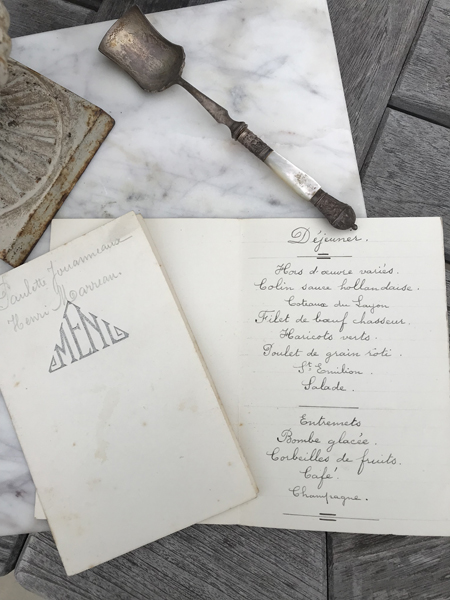 Paulette Jouanneaux
Henri Marreau.
MENU
Déjeuner.
Hors d'œuvre variés.
Colin sauce hollandaise.
Coteaux du Layon
Filet de bœuf chasseur.
Haricots verts.
Poulet de grain rôti.
St Emilion.
Salade.
Entremets
Bombe glacée.
Corbeilles de fruits.
Café.
Champagne.